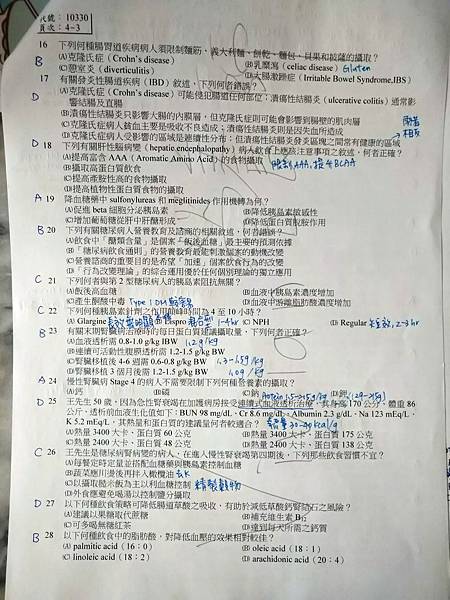 代號: 10330
頁次: 4-3
B 16 下列何種腸胃道疾病病人須限制麵筋、義大利麵、餅乾、麵包、貝果和披薩的攝取?
(A)克隆氏症(Crohn's disease) (B)乳糜瀉(celiac disease) Gluten
(C)憩室炎(diverticulitis) (D)大腸激躁症(Irritable Bowel Syndrome,IBS)
D 17 有關發炎性腸疾病(IBD)敘述,下列何者錯誤?
(A)克隆氏症(Crohn's disease)可能侵犯腸道任何部位;潰瘍性結腸炎(ulcerative colitis)通常影
響結腸及直腸
(B)潰瘍性結腸炎只影響大腸的內膜層,但克隆氏症則可能會影響到腸壁的肌肉層
(C)克隆氏症病人缺血主要是吸收不良造成;潰瘍性結腸炎則是因失血所造成
(D)克隆氏症病人受影響的區域是連續性分布;但潰瘍性結腸炎發炎區塊之間常有健康的區域
D 18 下列有關肝性腦病變(hepatic encephalopathy)病人飲食上應該注意事項之敘述,何者正確?
(A)提高富含 AAA(Aromatic Amino Acid)的食物攝取
(B)攝取高蛋白質飲食
(C)提高產胺性高的食物攝取
(D)提高植物性蛋白質食物的攝取
A 19 降血糖藥中 sulfonylureas 和 meglitinides 作用機轉為何?
(A)促進 beta 細胞分泌胰島素 (B)降低胰島素敏感性
(C)增加葡萄糖從肝中肝醣形成 (D)降低蛋白質脫胺作用
B 20 下列有關糖尿病人營養教育及諮商的相關敘述,何者錯誤?
(A)飲食中「醣類含量」是個案「飯後血糖」最主要的預測依據
(B)「糖尿病飲食通則」的營養教育最能刺激個案的動機改變
(C)營養諮商的重要目的是希望「加速」個案飲食行為的改變
(D)「行為改變理論」的綜合運用優於任何個別理論的獨立應用
C 21 下列何者與第 2 型糖尿病人的胰島素阻抗無關?
(A)飯後高血糖 (B)血液中胰島素濃度增加
(C)產生酮酸中毒 Type 1 DM (D)血液中游離脂肪酸濃度增加
C 22 下列何種胰島素針劑之作用巔峰時間為 4 至 10 小時?
(A) Glargine (B) Lispro 1-4hr (C) NPH (D) Regular 短效,2-3hr
B 23 有關末期腎臟病治療時的每日蛋白質建議攝取量,下列何者正確?
(A)血液透析需 0.8-1.0 g/kg IBW 1.2 g/kg
(B)連續可活動性腹膜透析需 1.2-1.5 g/kg BW
(C)腎臟移植後 4-6 週需 0.6-0.8 g/kg BW 1.3-1.5g/kg
(D)腎臟移植 3 個月後需 1.2-1.5 g/kg BW
A 24 慢性腎臟病 Stage 4 的病人不需要限制下列何種營養素的攝取?
(A)鈣 (B)磷
D 25 王先生 50 歲,因為急性腎衰竭在加護病房接受連續式血液透析治療,其身高 170 公分,體重 86
公斤,透析前血液生化值如下:BUN 98 mg/dL、Cr 8.6 mg/dL、Albumin 2.3 g/dL、Na 123 mEq/L、
K 5.2 mEq/L,其熱量和蛋白質的建議量何者較適合?
(A)熱量 3400 大卡、蛋白質 60 公克 (B)熱量 3400 大卡、蛋白質 175 公克
(C)熱量 2400 大卡、蛋白質 48 公克 (D)熱量 2400 大卡、蛋白質 138 公克
C 26 王先生是糖尿病腎病變的病人,在進入慢性腎衰竭第四期後,下列那些飲食習慣不宜?
(A)每餐定時定量並搭配血糖藥與胰島素控制血糖
(B)蔬菜應川燙後再拌入橄欖油 去K
(C)以攝取糙米飯為主以利血糖控制 精製穀物
(D)外食應避免喝湯以控制鹽分攝取
D 27 以下何種飲食策略可降低腸道草酸之吸收,有助於減低草酸鈣腎結石之風險?
(A)建議以果糖取代蔗糖 (B)補充維生素 B₁₂
(C)可多喝無糖紅茶 (D)達到每天所需之鈣質
B 28 以下何種飲食中的脂肪酸,對降低血壓的效果相對較佳?
(A) palmitic acid(16:0) (B) oleic acid(18:1)
(C) linoleic acid(18:2) (D) arachidonic acid(20:4)